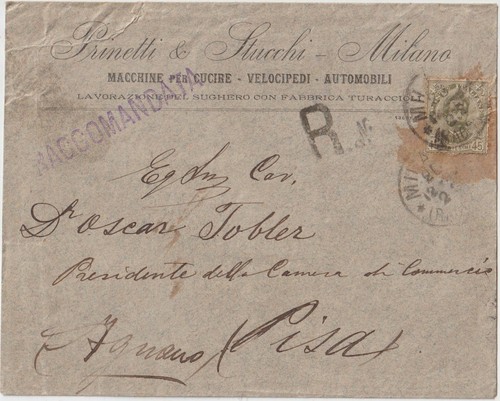 Prinetti & Stucchi - Milano
MACCHINE PER CUCIRE - VELOCIPEDI - AUTOMOBILI
LAVORAZIONE DEL SUGHERO CON FABBRICA TURACCIOLI
RACCOMANDATA
R
45
MIL
Egr Cav.
Dr Oscar Tobler
Presidente della Camera di Commercio
Agnano (Pisa)